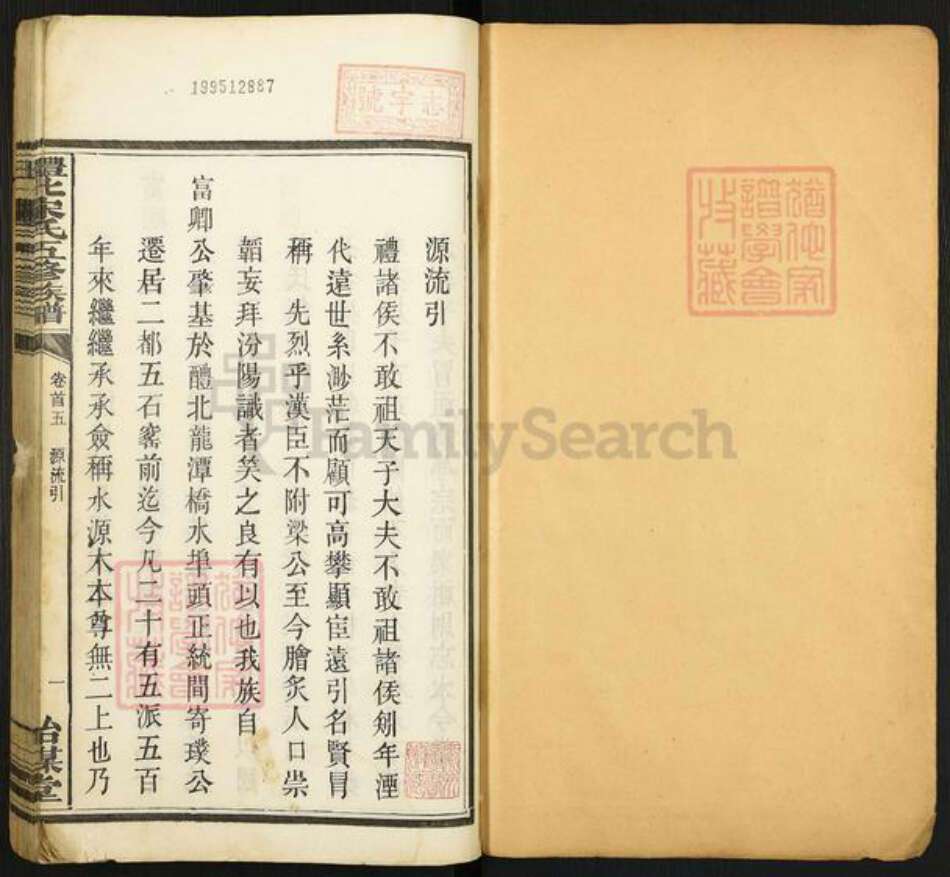 199512887
志字號
源流引
禮諸侯不敢祖天子大夫不敢祖諸侯矧年湮
代遠世系渺茫而顯可高攀顯宦遠引名賢冒
稱　先烈乎漢臣不附梁公至今膾炙人口崇
韜妄拜汾陽識者笑之良有以也我族自
富卿公肇基於醴北龍潭橋水埠頭正統間寄璞公
遷居二都五石窰前迄今凡二十有五派五百
年來繼繼承承僉稱水源木本尊無二上也乃
醴北宋氏五修族譜
卷首五　源流引
一
詒謀堂
譜學會
收藏
FamilySearch